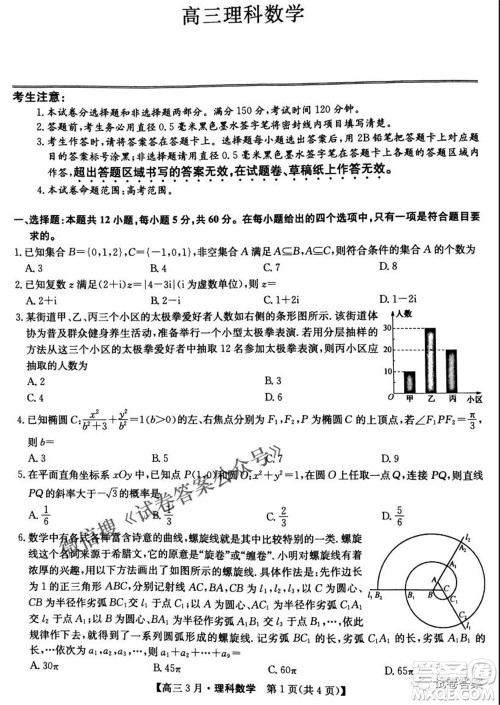 高三理科数学
考生注意:
1.本试卷分选择题和非选择题两部分。满分 150 分,考试时间 120 分钟。
2.答题前,考生务必用直径 0.5 毫米黑色墨水签字笔将密封线内项目填写清楚。
3.考生作答时,请将答案答在答题卡上。选择题每小题选出答案后,用 2B 铅笔把答题卡上对应题
目的答案标号涂黑;非选择题请用直径 0.5 毫米黑色墨水签字笔在答题卡上各题的答题区域内作
答,超出答题区域书写的答案无效,在试题卷、草稿纸上作答无效。
4.本试卷命题范围:高考范围。
一、选择题:本题共 12 小题,每小题 5 分,共 60 分。在每小题给出的四个选项中,只有一项是符合题目要
求的。
1.已知集合 B={0,1,2},C={-1,0,1},非空集合 A 满足 A⊆B,A⊆C,则符合条件的集合 A 的个数为
A.3 B.4 C.7 D.8
2.已知复数 z 满足(2+i)z=|4-3i|(i 为虚数单位),则 z=
A.2+i B.2-i C.1+2i D.1-2i
3.某街道甲、乙、丙三个小区的太极拳爱好者人数如右侧的条形图所示。该街道体
协为普及群众健身养生活动,准备举行一个小型太极拳表演.若用分层抽样的
方法从这三个小区的太极拳爱好者中抽取 12 名参加太极拳表演,则丙小区应抽
取的人数为
A.2 B.3
C.4 D.6
人数
30
20
10
0
甲 乙 丙 小区
4.已知椭圆 C:x²/(b²+3)+y²/b²=1(b>0)的左、右焦点分别为 F₁,F₂,P 为椭圆 C 的上顶点,若∠F₁PF₂=π/3,
则 b=
A.3 B.5 C.7 D.9
5.在平面直角坐标系 xOy 中,已知点 P(1,0)和圆 O:x²+y²=1,在圆 O 上任取一点 Q,则直线
PQ 的斜率大于-√3的概率是
A.1/6 B.1/3 C.2/3 D.5/6
6.数学中有各式各样富含诗意的曲线,螺旋线就是其中比较特别的一类.螺旋线
这个名词来源于希腊文,它的原意是“旋卷”或“缠卷”.小明对螺旋线有着
浓厚的兴趣,用以下方法画出了如图所示的螺旋线.具体作法是:先作边长
为 1 的正三角形 ABC,分别记射线 AC,BA,CB 为 l₁,l₂,l₃,以 C 为圆心、
CB 为半径作劣弧 BC₁交 l₁于点 C₁;以 A 为圆心、AC₁为半径作劣弧 C₁A₁
交 l₂于点 A₁;以 B 为圆心、BA₁为半径作劣弧 A₁B₁交 l₃于点 B₁,…,依此
规律作下去,就得到了一系列圆弧形成的螺旋线.记劣弧 BC₁的长,劣弧 C₁A₁
的长,劣弧 A₁B₁的长,…依次为 a₁,a₂,a₃,…,则 a₁+a₂+…+a₉=
A.30π B.45π C.60π D.65π
l₂
A₁
A
B
C
C₁
l₃
B₁
l₁
微信搜《试卷答案公众号》
【高三 3 月·理科数学 第 1 页(共 4 页)】
试卷答案